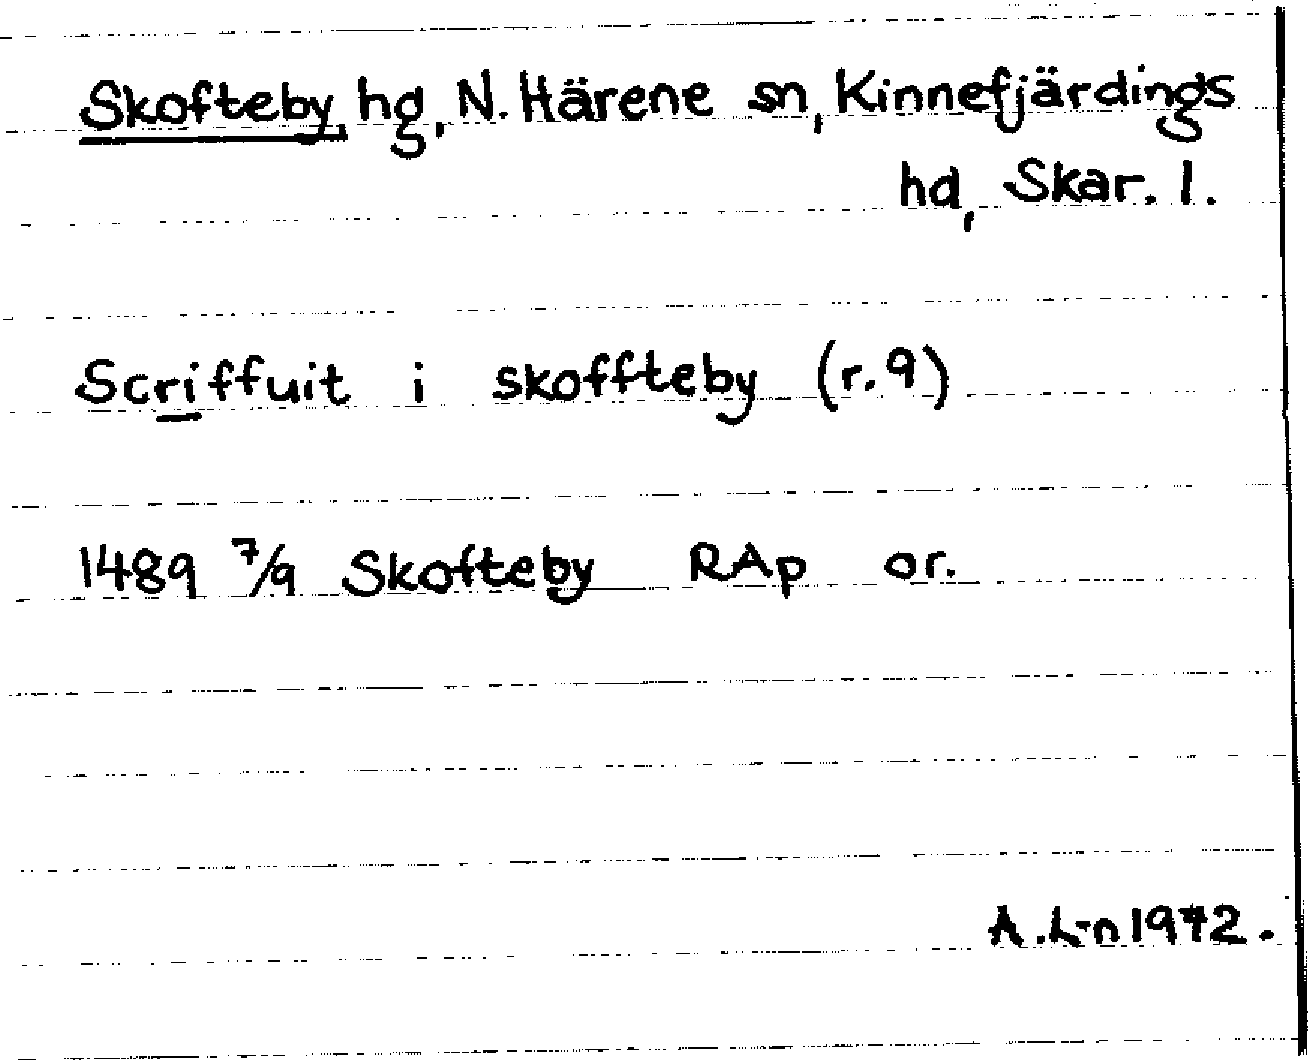 Skofteby, hg, N. Härene sn, Kinnefjärdings
hd, Skar. l.
Scriffuit i skoffteby (r.9)
1489 7/9 Skofteby RAp or.
A.L-n 1972.